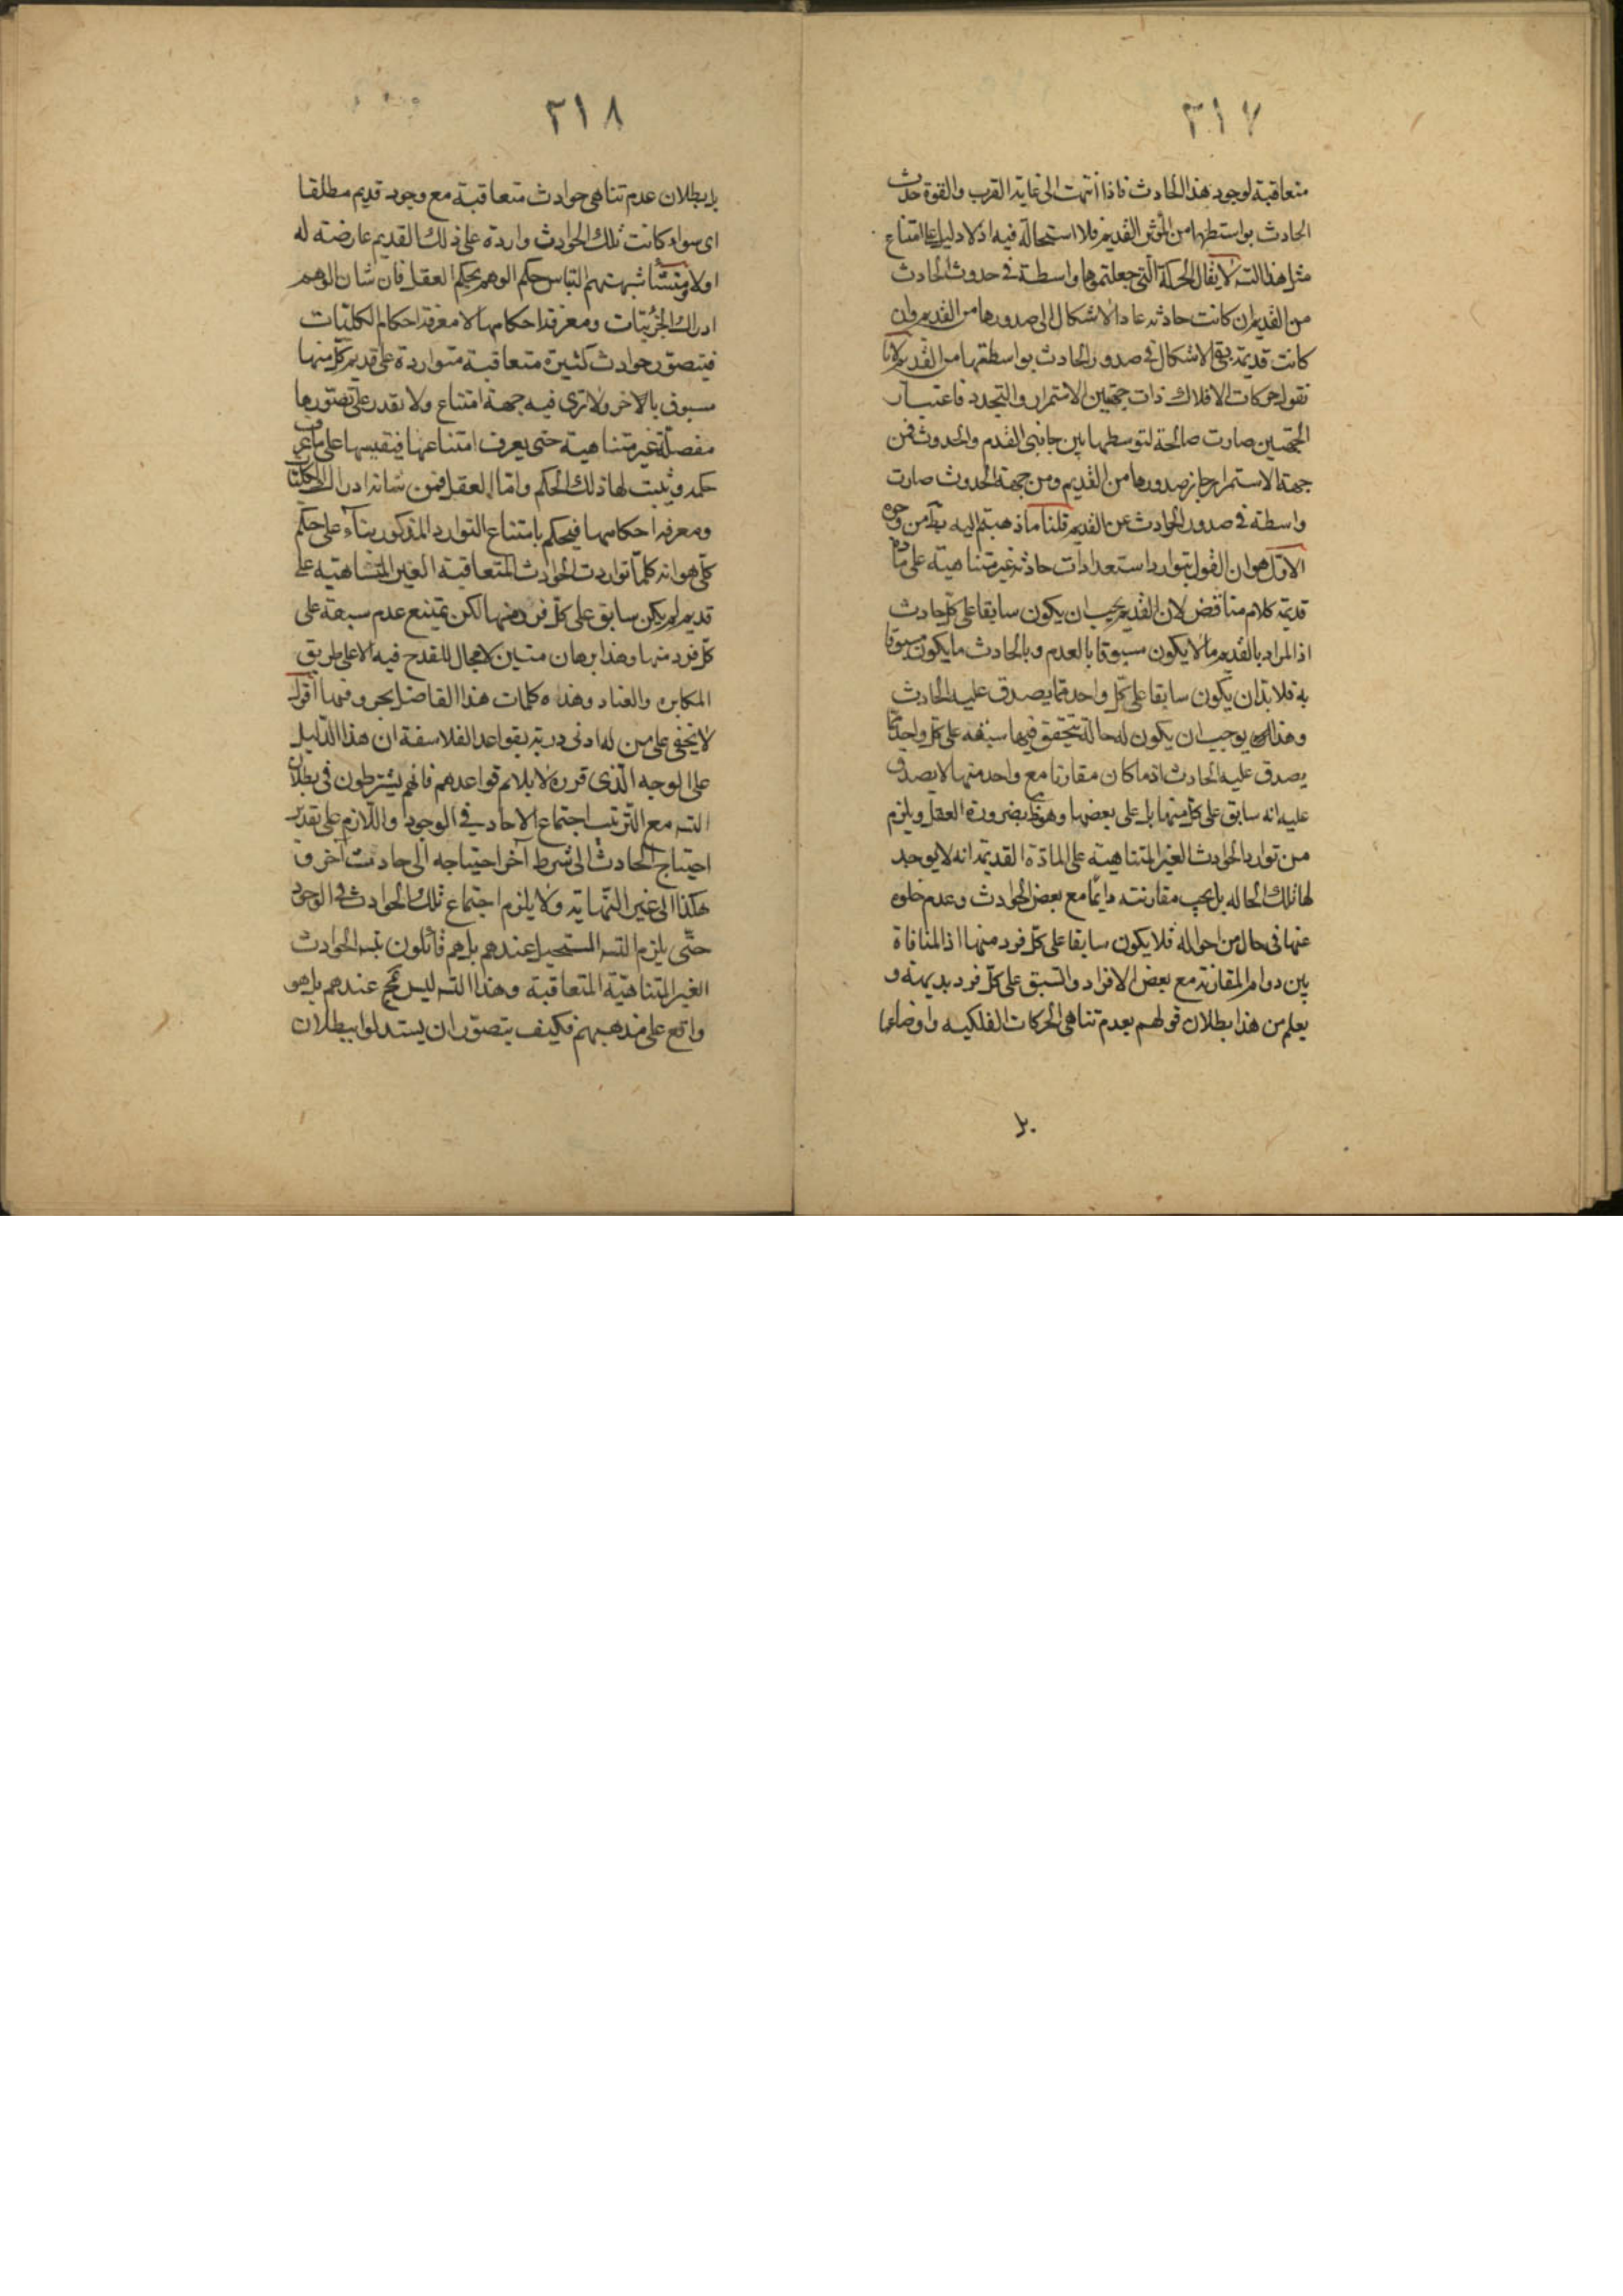 ٣١٧
متعاقبة لوجود هذا الحادث فاذا انتهت الى غاية القرب والقوة حدث
الحادث بواستطها من المؤثر القديم فلا استحالة فيه اذ لا دليل على امتناع
مثل هذا التسـ لا يقال الحركة التى جعلتموها واسطة فى حدوث الحادث
من القديم ان كانت حادثه عاد الاشكال الى صدورها من القديم وان
كانت قديمة بقى الاشكال فى صدور الحادث بواسطتها من القديم لانا
نقول حركات الافلاك ذات جهتين الاستمرار والتجدد فاعتبار
الجهتين صارت صالحة لتوسطها بين جانبى القدم والحدوث فمن
جهة الاستمرار جاز صدورها من القديم ومن جهة الحدوث صارت
واسطة فى صدور الحادث عن القديم قلنا ما ذهبتم اليه بط من وجوه
الاول هو ان القول بتوارد استعدادات حادثه غير متناهية على مادة
قديمة كلام متناقض لان القديم يجب ان يكون سابقا على كل حادث
اذ المراد بالقديم ما لا يكون مسبوقا بالعدم وبالحادث ما يكون مسبوقا
به فلا بد ان يكون سابقا على كل واحد مما يصدق عليه الحادث
وهذا يوجب ان يكون له حالة يتحقق فيها سبقه على كل واحد مما
يصدق عليه الحادث اذ ما كان مقارنا مع واحد منها لا يصدق
عليه انه سابق على كل منها بل على بعضها وهو بضرورة العقل ويلزم
من توارد الحوادث الغير المتناهية على المادة القديمة انه لا يوجد
لها تلك الحاله بل يجب مقارنته دايما مع بعض الحوادث وعدم خلوه
عنها فى حال من احواله فلا يكون سابقا على كل فرد منها اذ المنافاة
بين دوام المقارنة مع بعض الافراد والسبق على كل فرد بديهية و
يعلم من هذا بطلان قولهم بعدم تناهى الحركات الفلكيه واوضاعها
بل
٣١٨
بل بطلان عدم تناهى حوادث متعاقبة مع وجود قديم مطلقا
اى سواء كانت تلك الحوادث واردة على ذلك القديم عارضة له
اولا ومنشأ شبهتهم التباس حكم الوهم بحكم العقل فان شان الوهم
ادراك الجزئيات ومعرفة احكامها لا معرفة احكام الكليات
فيتصور حوادث كثيرة متعاقبة متواردة على قديم كل منها
مسبوق بالاخر ولا ترى فيه جهة امتناع ولا تقدر على تصورها
مفصلة غير متناهية حتى يعرف امتناعها فيقيسها على ما عرف
حكمه ويثبت لها ذلك الحكم واما العقل فمن شانه ادراك الكليات
ومعرفة احكامها فيحكم بامتناع التوارد المذكور بناء على حكم
كلى هو انه كلما تواردت الحوادث المتعاقبة الغير المتناهية على
قديم لم يكن سابق على كل فرد منها لكن يمتنع عدم سبقه على
كل فرد منها وهذا برهان متين لا مجال للقدح فيه الا على طريق
المكابره والعناد وهذه كلمات هذا الفاضل بحروفها اقول
لا يخفى على من له ادنى دربة بقواعد الفلاسفة ان هذا الدليل
على الوجه الذى قرره لا يلايم قواعدهم فانهم يشترطون فى بطلان
التسـ مع الترتب اجتماع الاحاد فى الوجود واللازم على تقدير
احتياج الحادث الى شرط آخر احتياجه الى حادث آخر و
هكذا الى غير النهاية ولا يلزم اجتماع تلك الحوادث فى الوجود
حتى يلزم التسـ المستحيل عندهم بل هم قائلون بتسـ الحوادث
الغير المتناهية المتعاقبة وهذا التسـ ليس بمح عندهم بل هو
واقع على مذهبهم فكيف يتصور ان يستدلوا ببطلان